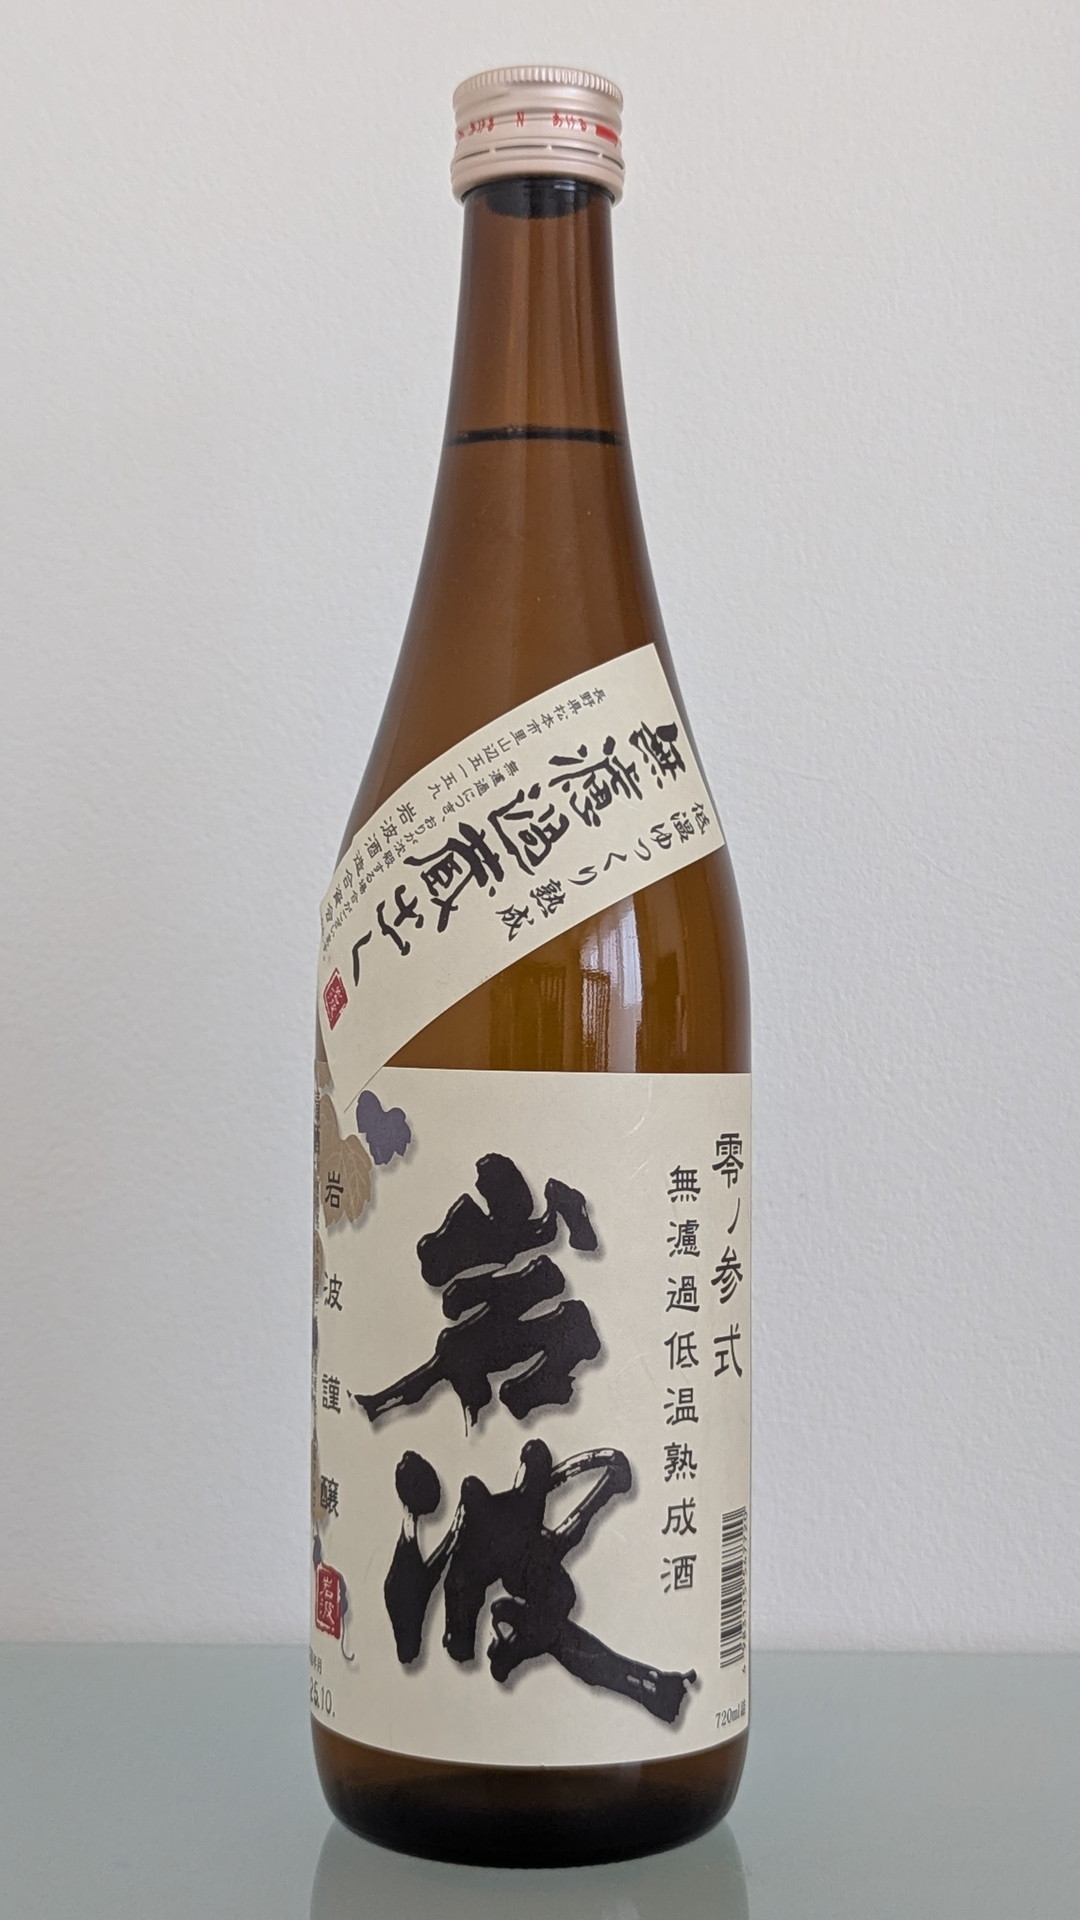 あける N あける
長野県松本市里山辺五一五九
岩波酒造合資会社
無濾過につき、おりが沈殿する場合がございます。
無濾過蔵出し
低温ゆっくり熟成
零ノ参式
無濾過低温熟成酒
岩波
岩波謹醸
岩波
25.10.
720ml詰